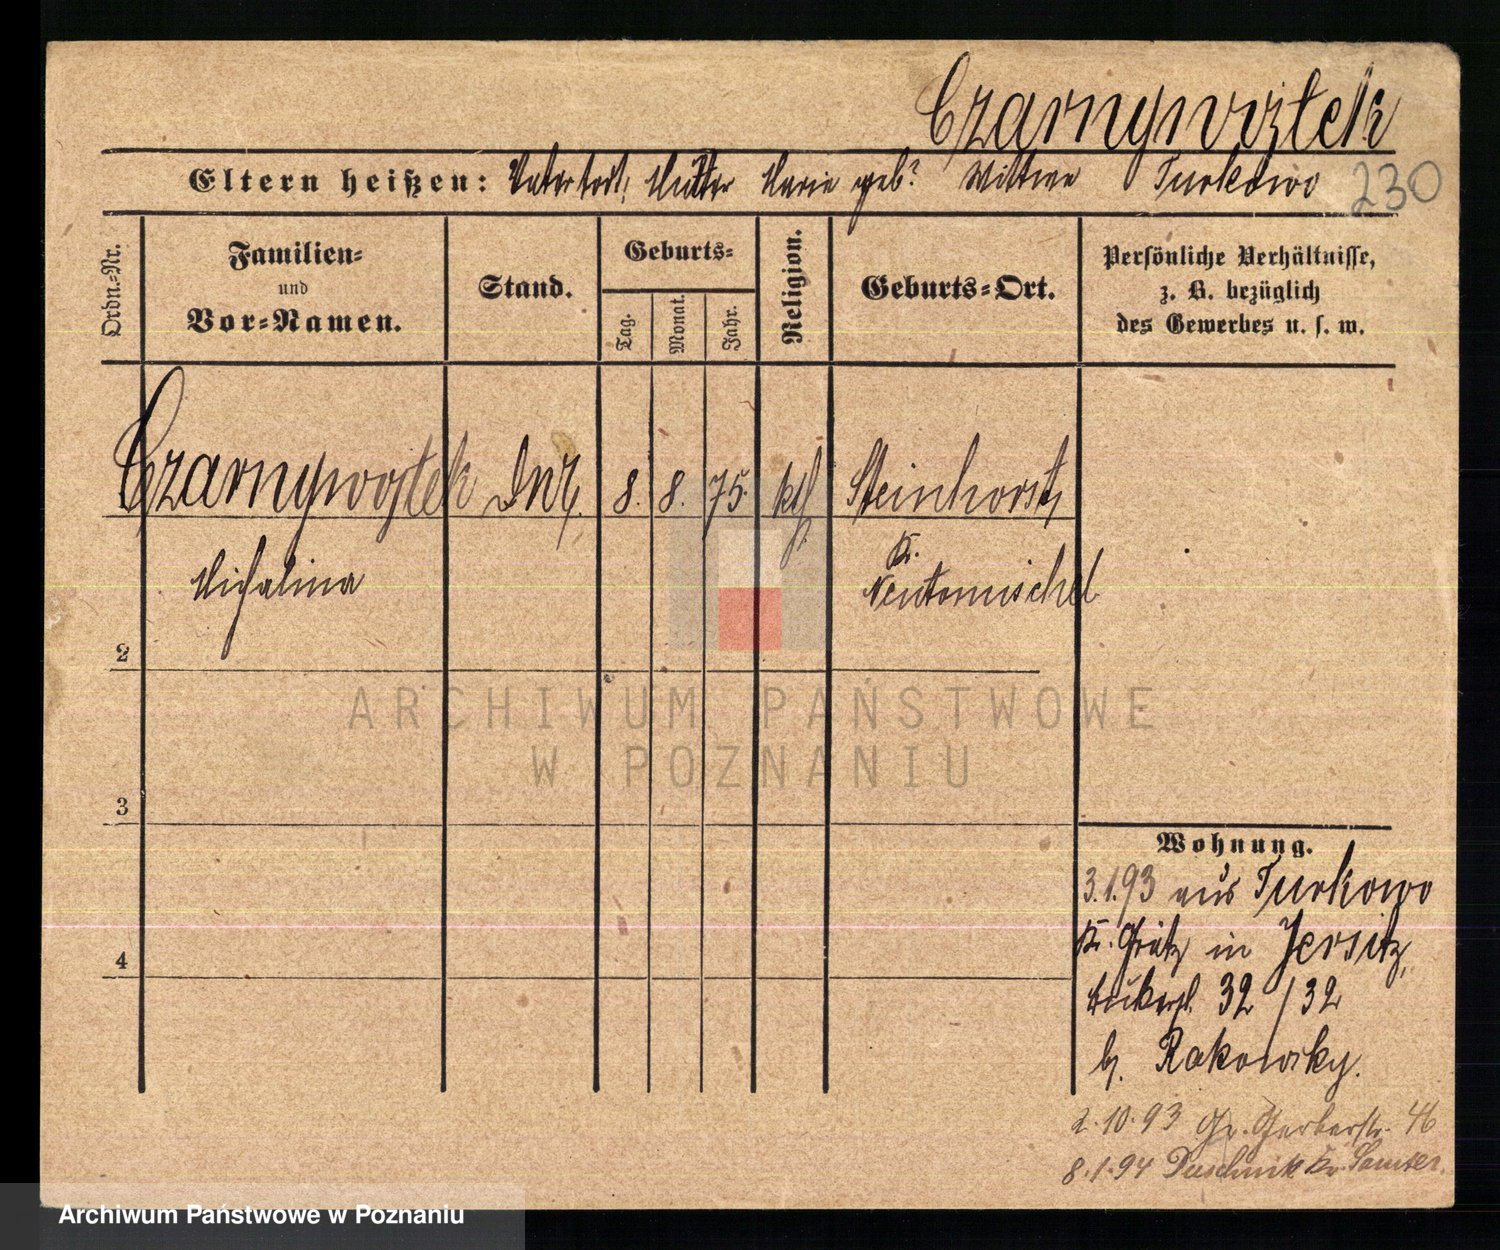 Czarnywojtek
Eltern heißen: Vater tot, Mutter Marie geb? Wittwe Turkowo 230
Ordn.-Nr.
Familien-
und
Vor-Namen.
Stand.
Geburts-
Tag.
Monat.
Jahr.
Religion.
Geburts-Ort.
Persönliche Verhältnisse,
z. B. bezüglich
des Gewerbes u. s. w.
Czarnywojtek 8. 8. 75 kth. Steinhorst,
Kr.
Michalina Neutomischel
2
ARCHIWUM PAŃSTWOWE
W POZNANIU
3
Wohnung.
3.1.93 aus Turkowo
Kr. Grätz in Jersitz,
32/32
b. Rakowsky.
4
2.10.93 Gr. Gerberstr. 46
8.1.94 Duschnik Kr. Samter.
Archiwum Państwowe w Poznaniu